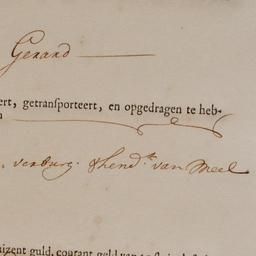 Gerard
ert, getransporteert, en opgedragen te heb-
n
verburg. & hend.k van Meel
uizent guld. courant geld van